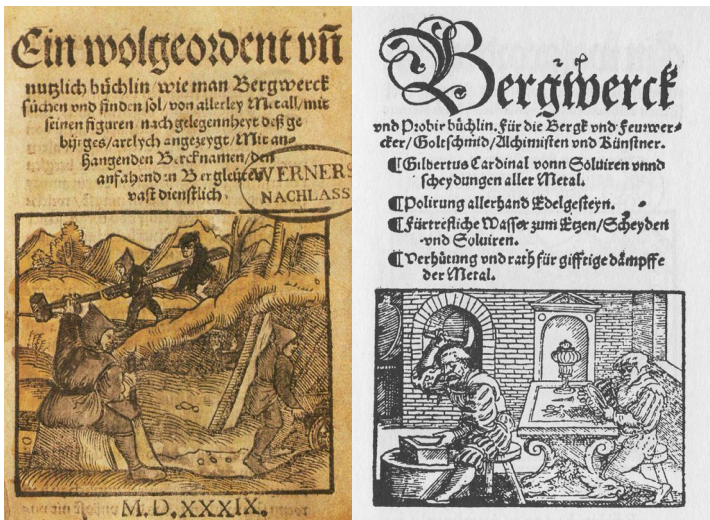 Ein wolgeordent vñ
nutzlich büchlin / wie man Bergwerck
süchen vnd finden sol / von allerley Metall / mit
seinen figuren nach gelegenheyt deß ge
birges / artlych angezeygt / Mit an-
hangenden Bercknamen / den
anfahenden Bergleuten
vast dienstlich.
WERNERS
NACHLASS
M. D. XXXIX.
Bergwerck
vnd Probir büchlin. Für die Bergk vnd Feurwer-
cker / Goltschmid / Alchimisten vnd Künstner.
¶ Gilbertus Cardinal vonn Soluiren vnnd
scheydungen aller Metal.
¶ Polirung allerhand Edelgesteyn.
¶ Fürtrefliche Wasser zum Etzen / Scheyden
vnd Soluiren.
¶ Verhütung vnd rath für gifftige dämpffe
der Metal.